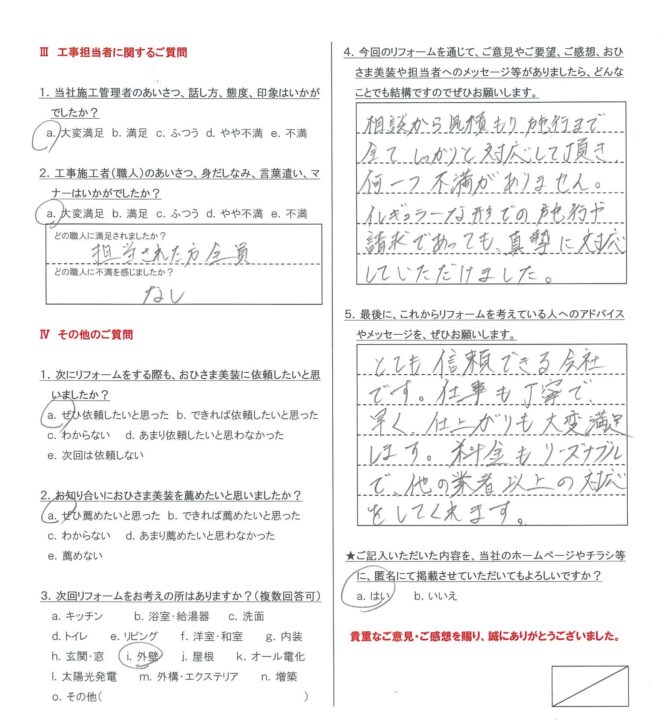 Ⅲ 工事担当者に関するご質問
1. 当社施工管理者のあいさつ、話し方、態度、印象はいかが
でしたか？
a. 大変満足 b. 満足 c. ふつう d. やや不満 e. 不満
2. 工事施工者（職人）のあいさつ、身だしなみ、言葉遣い、マ
ナーはいかがでしたか？
a. 大変満足 b. 満足 c. ふつう d. やや不満 e. 不満
どの職人に満足されましたか？
担当された方全員
どの職人に不満を感じましたか？
なし
Ⅳ その他のご質問
1. 次にリフォームをする際も、おひさま美装に依頼したいと思
いましたか？
a. ぜひ依頼したいと思った b. できれば依頼したいと思った
c. わからない d. あまり依頼したいと思わなかった
e. 次回は依頼しない
2. お知り合いにおひさま美装を薦めたいと思いましたか？
a. ぜひ薦めたいと思った b. できれば薦めたいと思った
c. わからない d. あまり薦めたいと思わなかった
e. 薦めない
3. 次回リフォームをお考えの所はありますか？（複数回答可）
a. キッチン b. 浴室・給湯器 c. 洗面
d. トイレ e. リビング f. 洋室・和室 g. 内装
h. 玄関・窓 i. 外壁 j. 屋根 k. オール電化
l. 太陽光発電 m. 外構・エクステリア n. 増築
o. その他（ ）
4. 今回のリフォームを通じて、ご意見やご要望、ご感想、おひ
さま美装や担当者へのメッセージ等がありましたら、どんな
ことでも結構ですのでぜひお願いします。
相談から見積もり施行まで
全てしっかりと対応して頂き
何一つ不満がありません。
イレギュラーな形での施行や
請求であっても、真摯に対応
していただけました。
5. 最後に、これからリフォームを考えている人へのアドバイス
やメッセージを、ぜひお願いします。
とても信頼できる会社
です。仕事も丁寧で、
早く、仕上がりも大変満足
します。料金もリーズナブル
で、他の業者以上の対応
をしてくれます。
★ご記入いただいた内容を、当社のホームページやチラシ等
に、匿名にて掲載させていただいてもよろしいですか？
a. はい b. いいえ
貴重なご意見・ご感想を賜り、誠にありがとうございました。